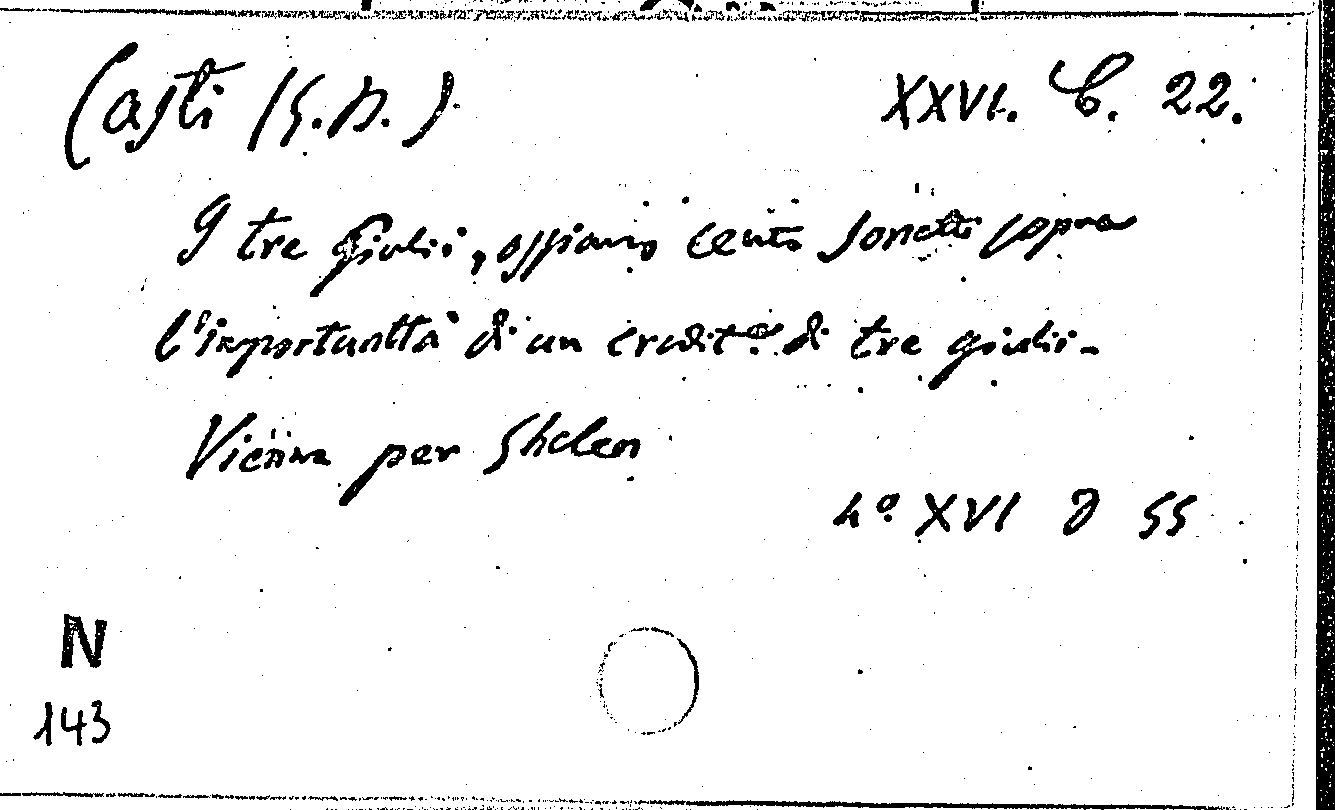 Casti (G.B.) XXVI. C. 22.
I tre Giulii, ossiano cento sonetti sopra
l'importunità di un credit.e di tre giulii.
Vienna per Ghelen
4º XVI D 55
N
143